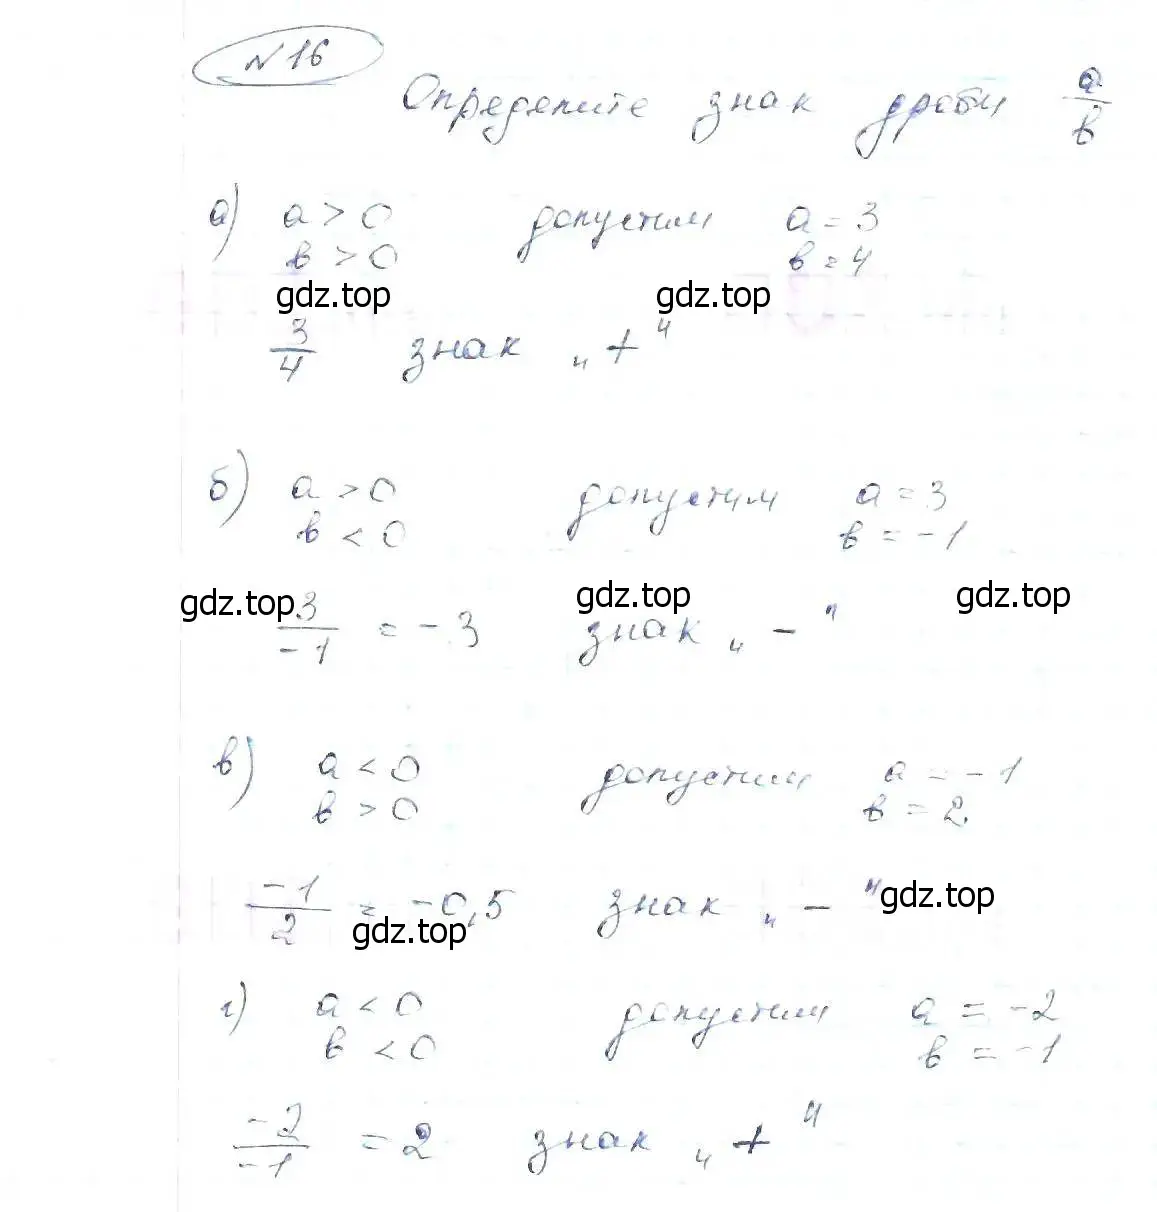 № 16
Определите знак дроби a/b
а) a > 0 допустим a = 3
b > 0 b = 4
gdz.top gdz.top
3/4 знак „+"
б) a > 0 допустим a = 3
b < 0 b = -1
gdz.top gdz.top gdz.top
3/-1 = -3 знак „-"
в) a < 0 допустим a = -1
b > 0 b = 2
-1/2 = -0,5 знак „-" gdz.top
gdz.top
г) a < 0 допустим a = -2
b < 0 b = -1
-2/-1 = 2 знак „+"